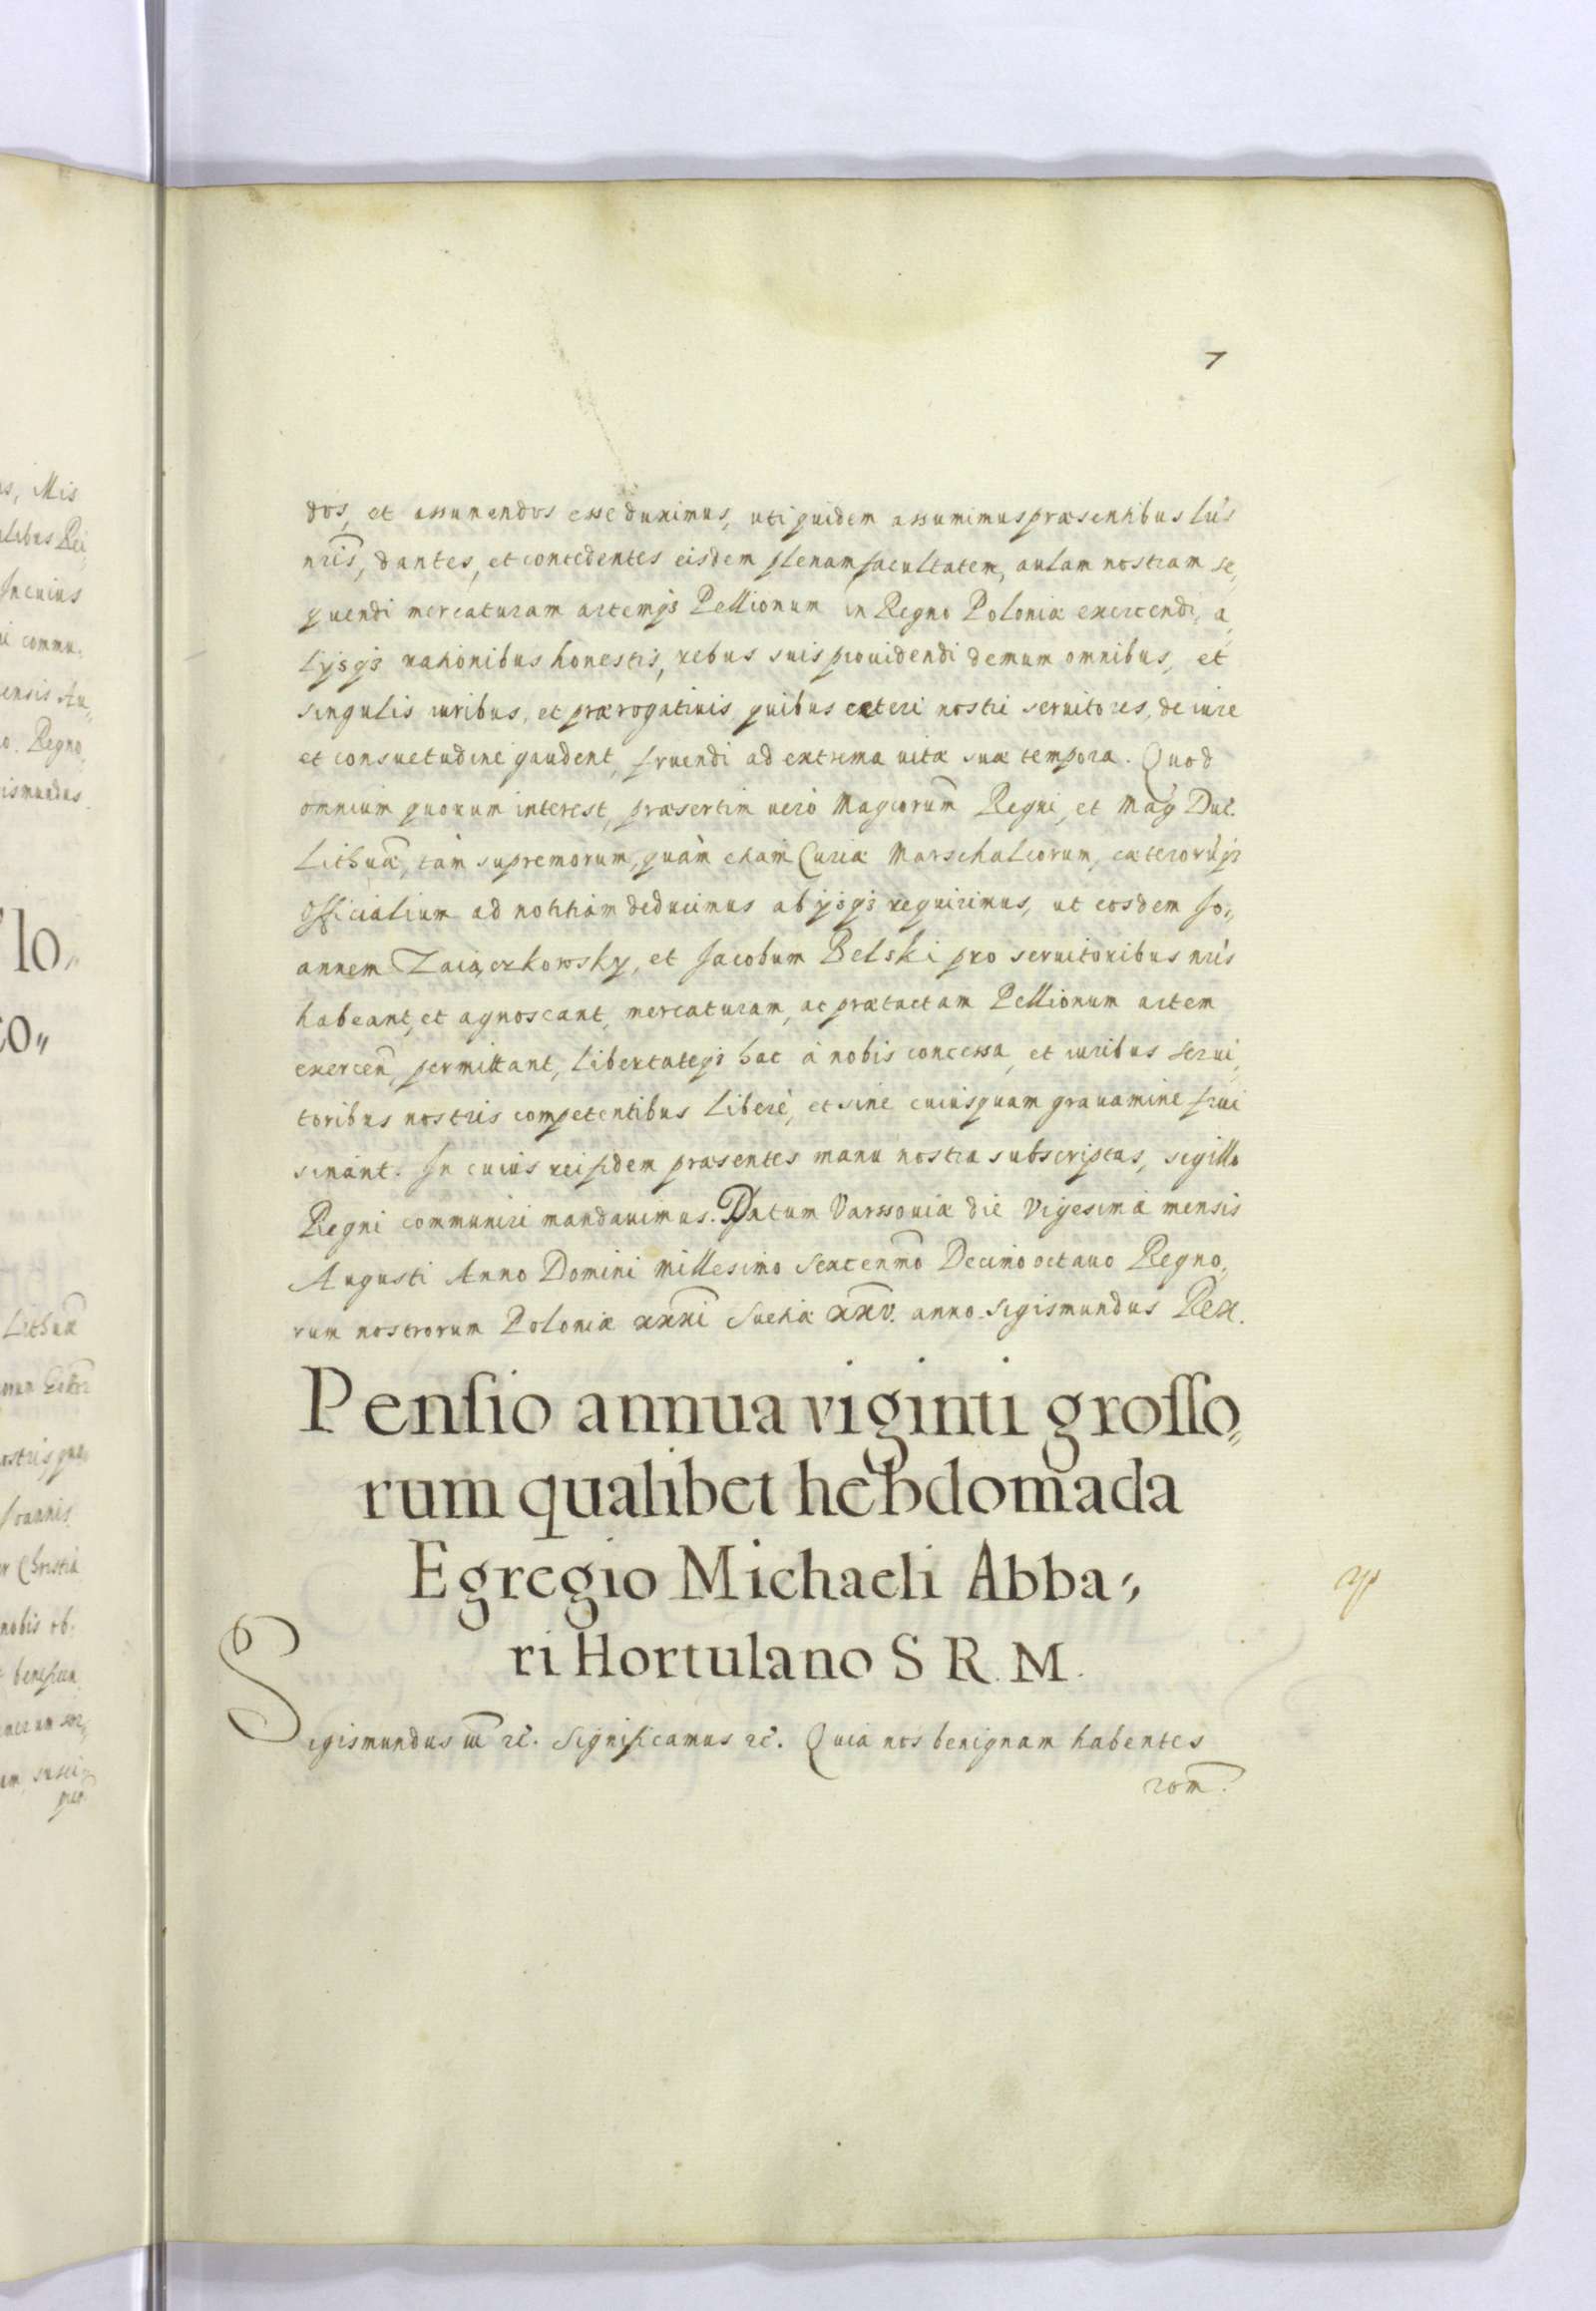 7
dos, et assumendos esse duximus, uti quidem assumimus præsentibus lr̃is
nr̃is, dantes, et concedentes eisdem plenam facultatem, aulam nostram se„
quendi mercaturam artemq₃ Pellionum in Regno Poloniæ exercendi, a„
lijsq₃ rationibus honestis, rebus suis prouidendi demum omnibus, et
singulis iuribus, et prærogatiuis quibus cæteri nostri seruitores, de iure
et consuetudine gaudent, fruendi ad extrema uitæ suæ tempora. Quod
omnium quorum interest, præsertim uerò Magcorum̃ Regni, et Mag Duc.
Lithuã, tàm supremorum, quàm etiam Curiæ Marschalcorum, cæterorũq₃
Officialium ad notitiam deducimus ab ijsq₃ requirimus, ut eosdem Jo„
annem Zaiączkowsky, et Jacobum Belski pro seruitoribus nr̃is
habeant, et agnoscant, mercaturam, ac prætactam Pellionum artem
exercen̄, permittant, libertateq₃ hac à nobis concessa, et iuribus serui„
toribus nostris competentibus liberè, et sine cuiusquam grauamine frui
sinant. In cuius rei fidem præsentes manu nostra subscriptas, sigillo
Regni communiri mandauimus. Datum Varssouiæ die Vigesima mensis
Augusti Anno Domini Millesimo Sexcenm̃o Decimo octauo Regno„
rum nostrorum Poloniæ xxxi Sueciæ xxv. anno. Sigismundus Rex.
Penſio annua viginti groſſo„
rum qualibet hebdomada
Egregio Michaeli Abba„
ri Hortulano S R. M.
Sigismundus iii ꝛc̃. Significamus ꝛc̃. Quia nos benignam habentes
rom̃.
Mis
Rei
In cuius
commu„
ensis Au„
Regno„
ismundus
lo„
co„
Lithuã
Joannis
Christia
nobis ob„